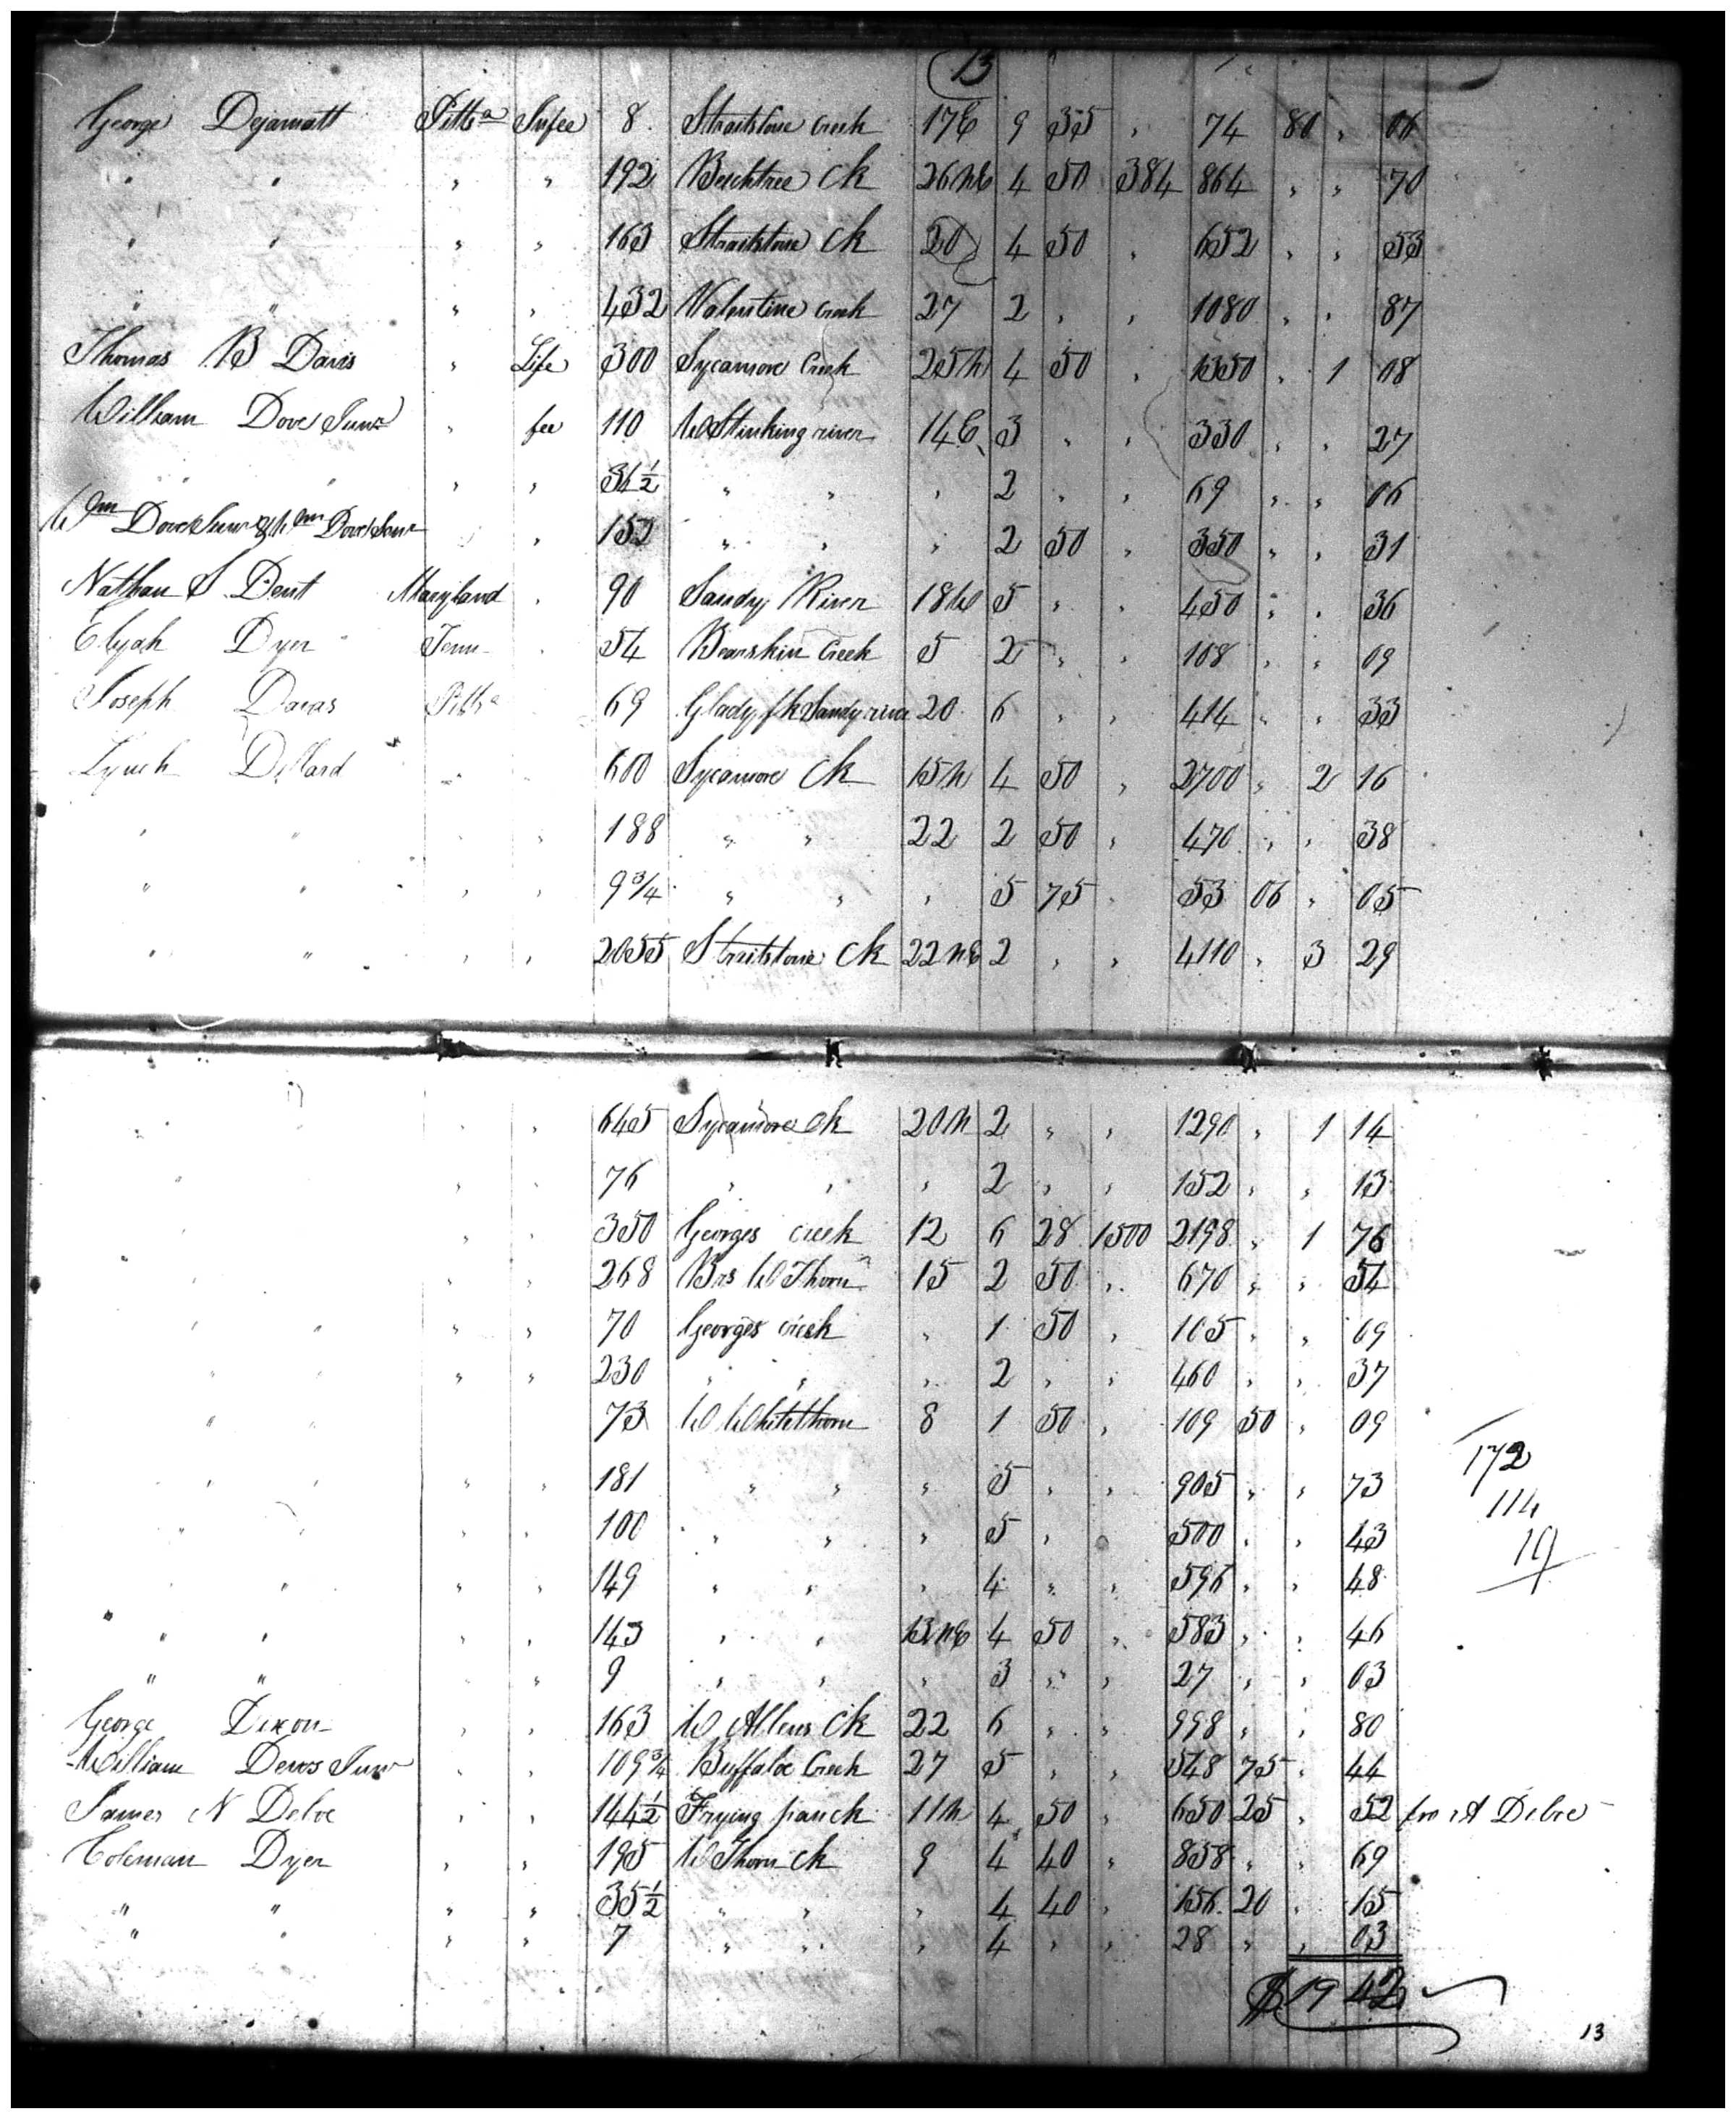 13
George Dejarnatt Pittsa Infee 8 Straitstone Creek 17E 9 35 " 74 80 " 06
" " " " 192 Beechtree Ck 26NE 4 50 384 864 " " 70
" " " " 163 Straitstone Ck 20 4 50 " 652 " " 53
" " " " 432 Valentine Creek 27 2 " " 1080 " " 87
Thomas B Davis " Life 300 Sycamore Creek 25N 4 50 " 1350 " 1 08
William Dove Junr " fee 110 W Stinking river 14E 3 " " 330 " " 27
" " " " 34½ " " " 2 " " 69 " " 06
Wm Dove Junr & Wm Dove Senr " 152 " " " 2 50 " 350 " " 31
Nathan S Dent Maryland " 90 Sandy River 18W 5 " " 450 " " 36
Elijah Dyer Tenn " 54 Bearskin Creek 5 2 " " 108 " " 09
Joseph Davas Pittsa 69 Glady fk Sandy river 20 6 " " 414 " " 33
Lynch Dillard " 600 Sycamore Ck 15N 4 50 " 2700 " 2 16
" " " " 188 " " 22 2 50 " 470 " " 38
" " " " 9¾ " " " 5 75 " 53 06 " 05
" " " " 2055 Straitstone Ck 22NE 2 " " 4110 " 3 29
" " " 645 Sycamore Ck 20N 2 " " 1290 " 1 14
" " " 76 " " " 2 " " 152 " " 13
" " " 350 Georges creek 12 6 28 1500 2198 " 1 76
" " " 268 Brs W Thorn 15 2 50 " 670 " " 54
" " " " 70 Georges creek " 1 50 " 105 " " 09
" " " " 230 " " " 2 " " 460 " " 37
" " " " 73 W Whitethorn 8 1 50 " 109 50 " 09
" " " " 181 " " " 5 " " 905 " " 73
" " " " 100 " " " 5 " " 500 " " 43
" " " " 149 " " " 4 " " 596 " " 48
" " " " 143 " " 13NE 4 50 " 583 " " 46
" " " " 9 " " " 3 " " 27 " " 03
George Dixon " " 163 W Allens Ck 22 6 " " 998 " " 80
William Dews Junr " " 109¾ Buffaloe Creek 27 5 " " 548 75 " 44
James N Deboe " " 144½ Frying pan ck 11N 4 50 " 650 25 " 52
Coleman Dyer " " 195 W Thorn ck 9 4 40 " 858 " " 69
" " " " 35½ " " " 4 40 " 156 20 " 15
" " " " 7 " " " 4 " " 28 " " 03
$19 42
172
114
19
13